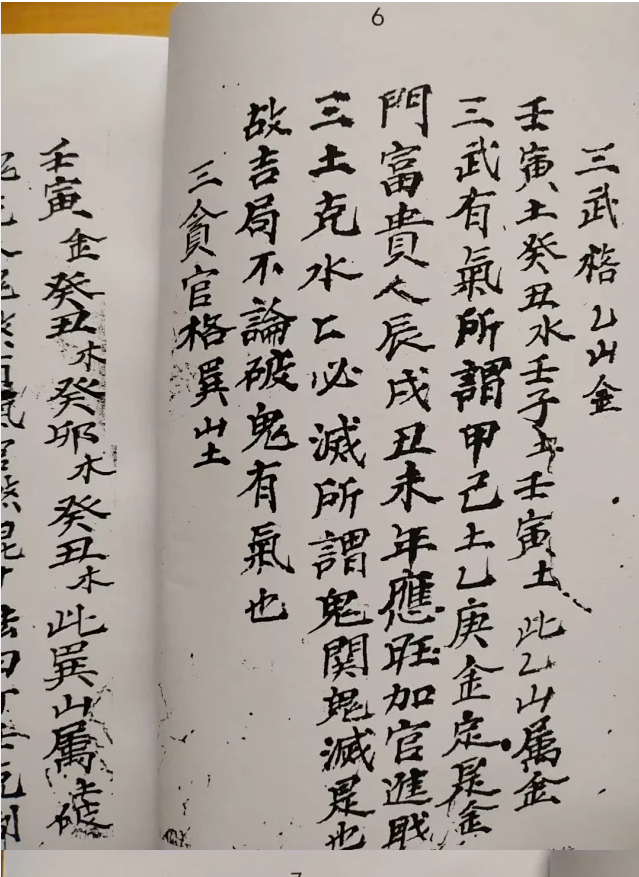 6
三武格乙山金
壬寅土癸丑水壬子土壬寅土此乙山属金
三武有氣所謂甲己土乙庚金定是金
門富貴人辰戌丑未年應旺加官進
三土克水亡必滅所謂鬼関鬼滅是也
故吉局不論破鬼有氣也
三貪官格巽山土
壬寅金癸丑木癸卯木癸丑木此巽山属土破
7